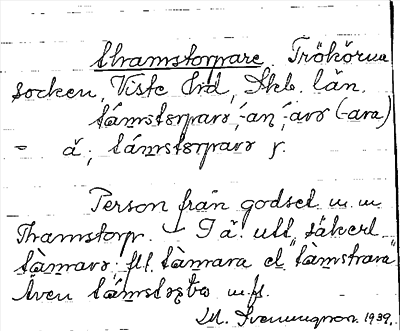 thamstorpare. Trökörna
socken, Viste hrd, Skb. län.
tám̥storparə, -an, -arə (-ara)
- ǎ; támstorparə f.
Person från godset m. m
Thamstorp. — I ä. utt. säkerl.
tàmarə, fl. tàmara el "tàmstrara"
Även támsto m. fl.
M. Svenungson. 1939.